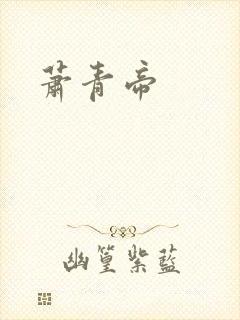 萧青帝
幽篁紫蓝